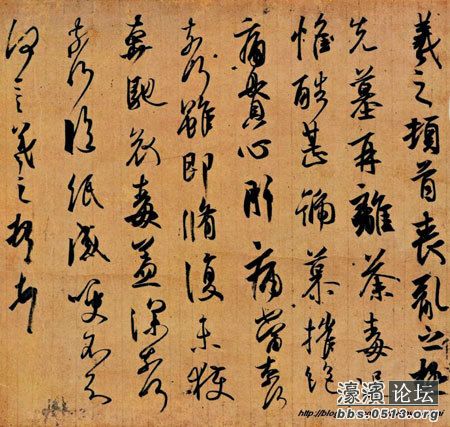 羲之頓首喪亂之極
先墓再離荼毒追
惟酷甚號慕摧絕
痛貫心肝痛當奈何
奈何雖即脩復未獲
奔馳哀毒益深奈何
奈何臨紙感哽不知
何言羲之頓首
濠濱论坛
bbs.0513.org